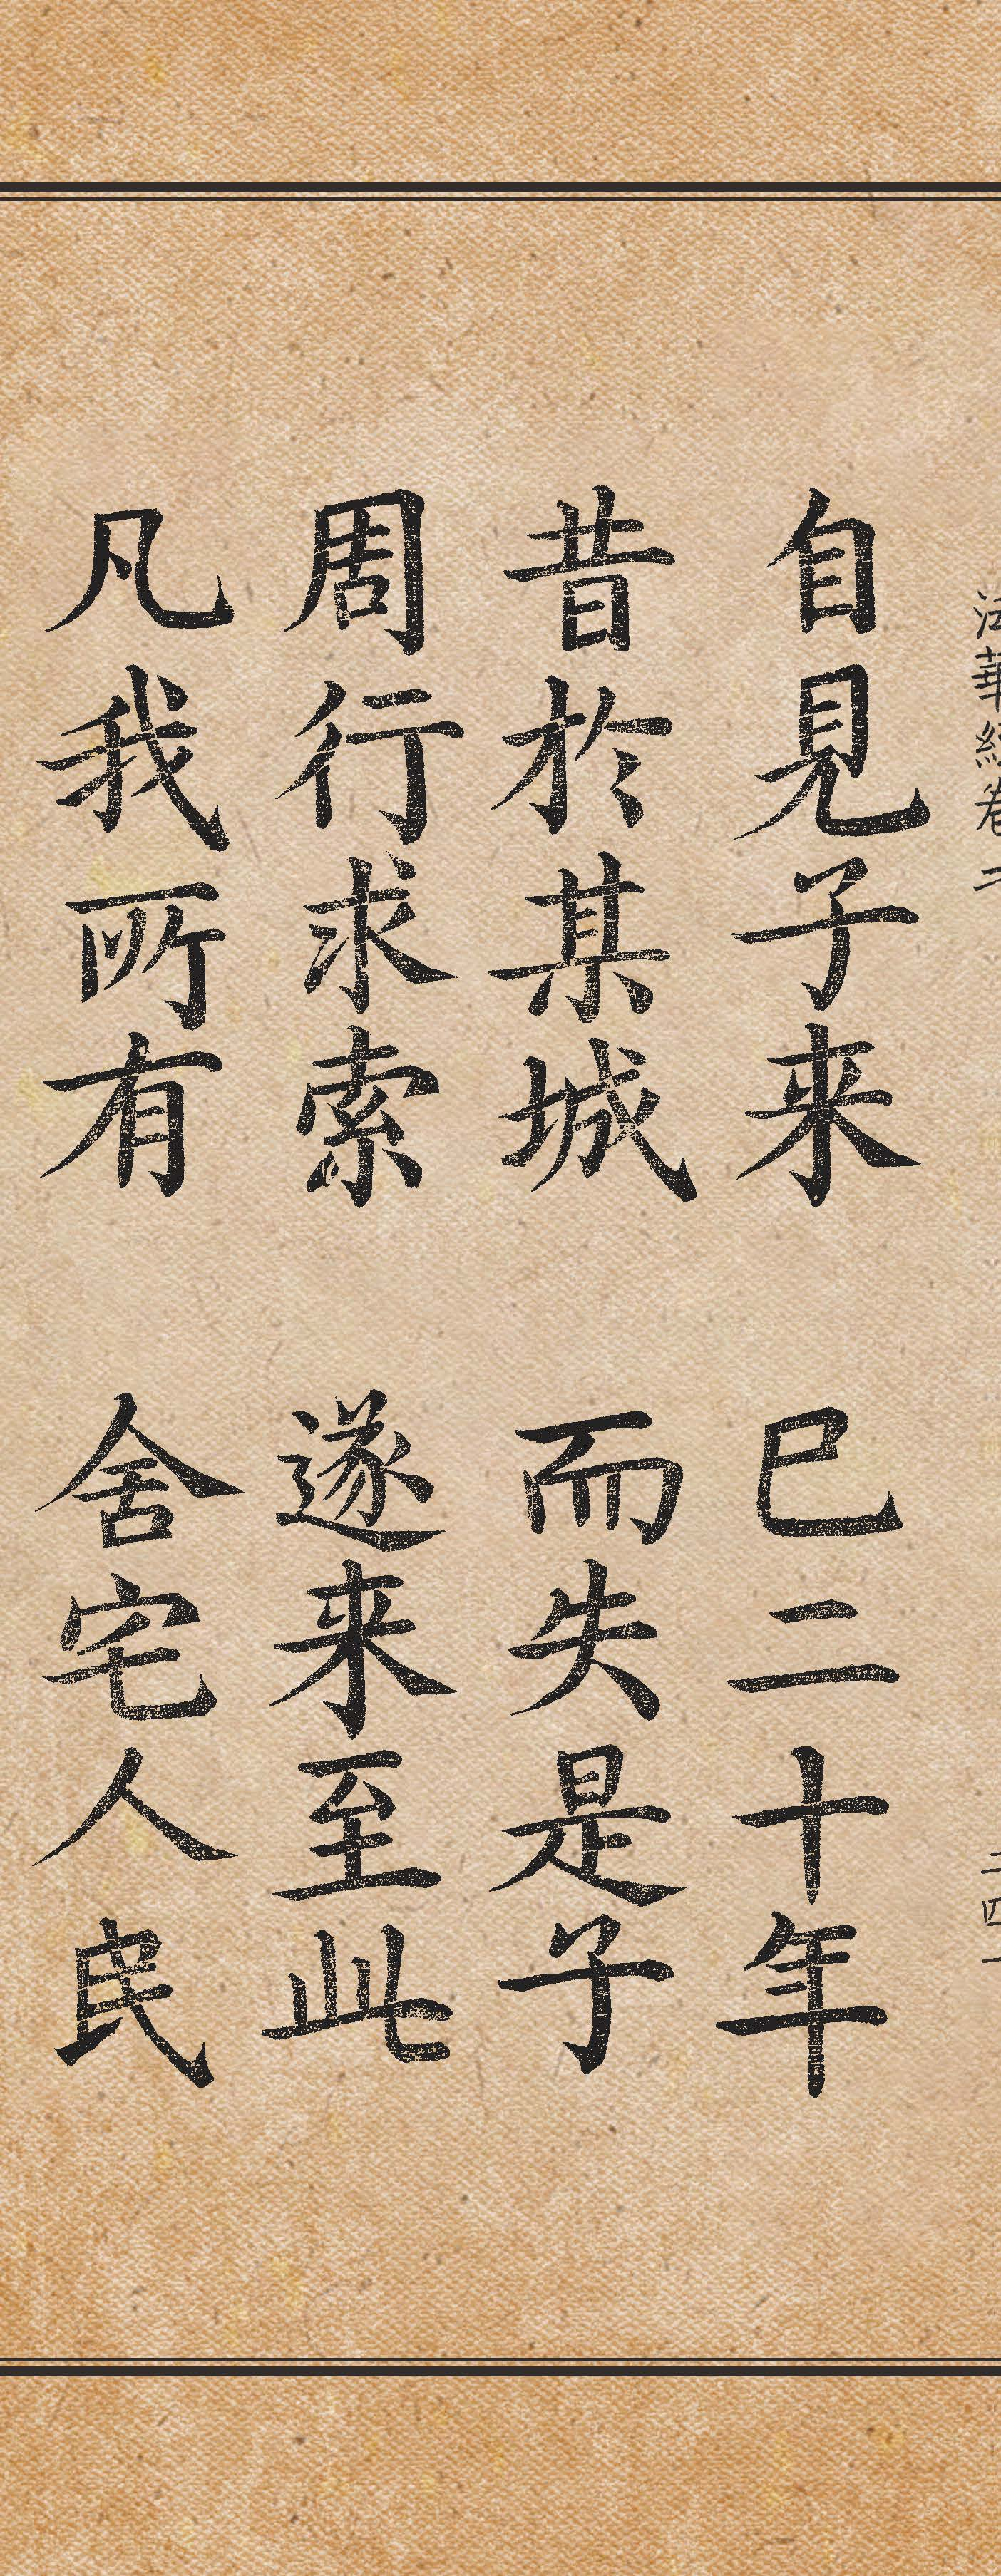 法華經卷二
二四一
自見子来 已二十年
昔於某城 而失是子
周行求索 遂来至此
凡我所有 舍宅人民